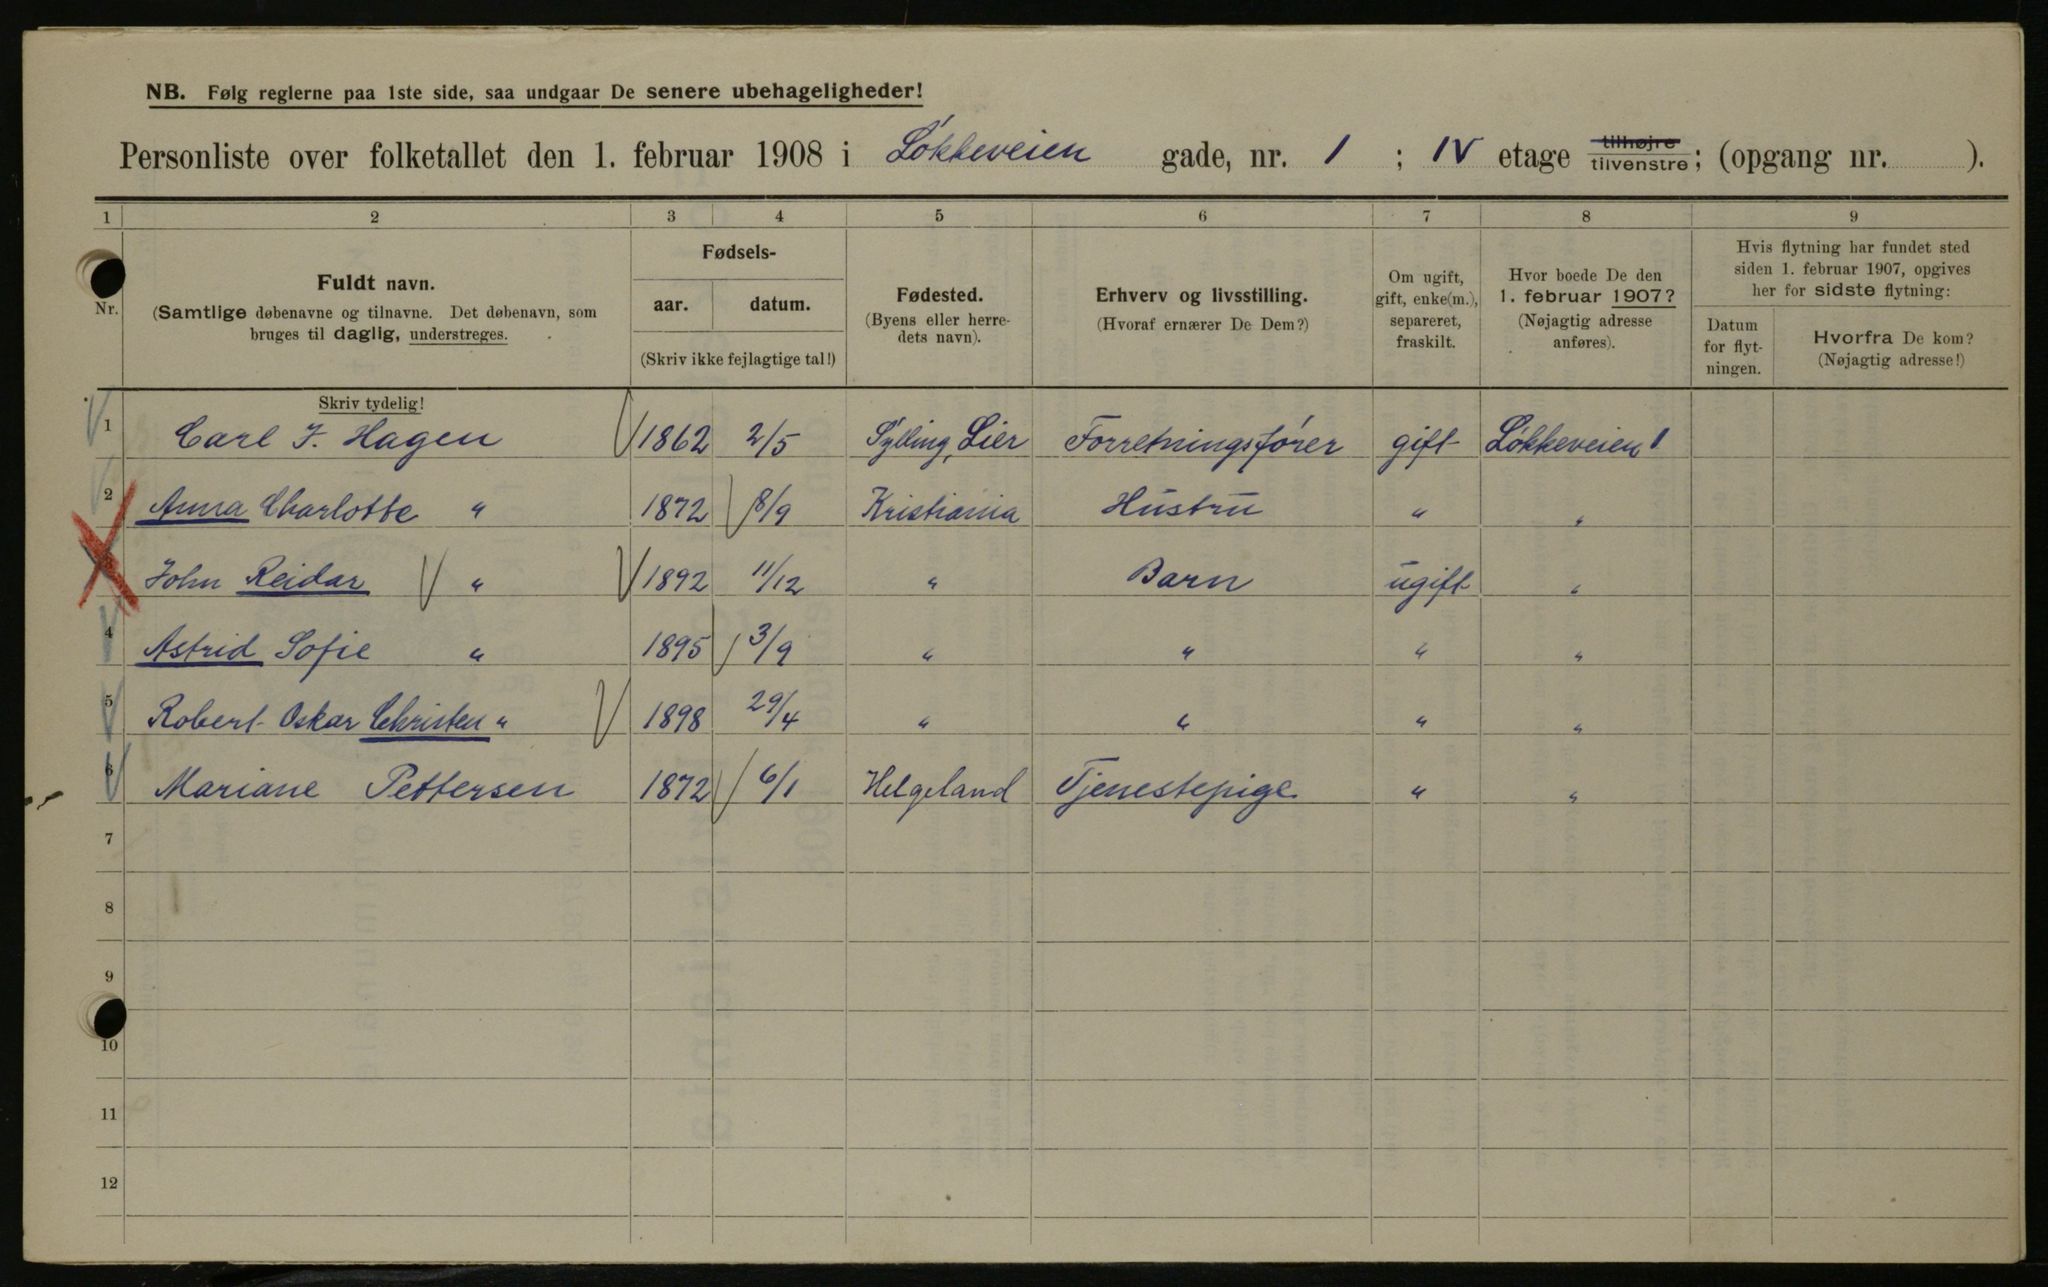 NB. Følg reglerne paa 1ste side, saa undgaar De senere ubehageligheder!
Personliste over folketallet den 1. februar 1908 i Løkkeveien gade, nr. 1 ; IV etage tilhøjre tilvenstre; (opgang nr. ).
1 2 3 4 5 6 7 8 9
Nr.
Fuldt navn.
(Samtlige døbenavne og tilnavne. Det døbenavn, som
bruges til daglig, understreges.
Fødsels-
aar. datum.
(Skriv ikke fejlagtige tal!)
Fødested.
(Byens eller herre-
dets navn).
Erhverv og livsstilling.
(Hvoraf ernærer De Dem?)
Om ugift,
gift, enke(m.),
separeret,
fraskilt.
Hvor boede De den
1. februar 1907?
(Nøjagtig adresse
anføres).
Hvis flytning har fundet sted
siden 1. februar 1907, opgives
her for sidste flytning:
Datum
for flyt-
ningen.
Hvorfra De kom?
(Nøjagtig adresse!)
Skriv tydelig!
1 Carl F. Hagen 1862 2/5 Sylling, Lier Forretningsfører gift Løkkeveien 1
2 Anna Charlotte " 1872 8/9 Kristiania Hustru " "
John Reidar " 1892 11/12 " Barn ugift "
4 Astrid Sofie " 1895 3/9 " " " "
5 Robert Oskar Christen " 1898 29/4 " " " "
6 Mariane Pettersen 1872 6/1 Helgeland Tjenestepige " "
7
8
9
10
11
12